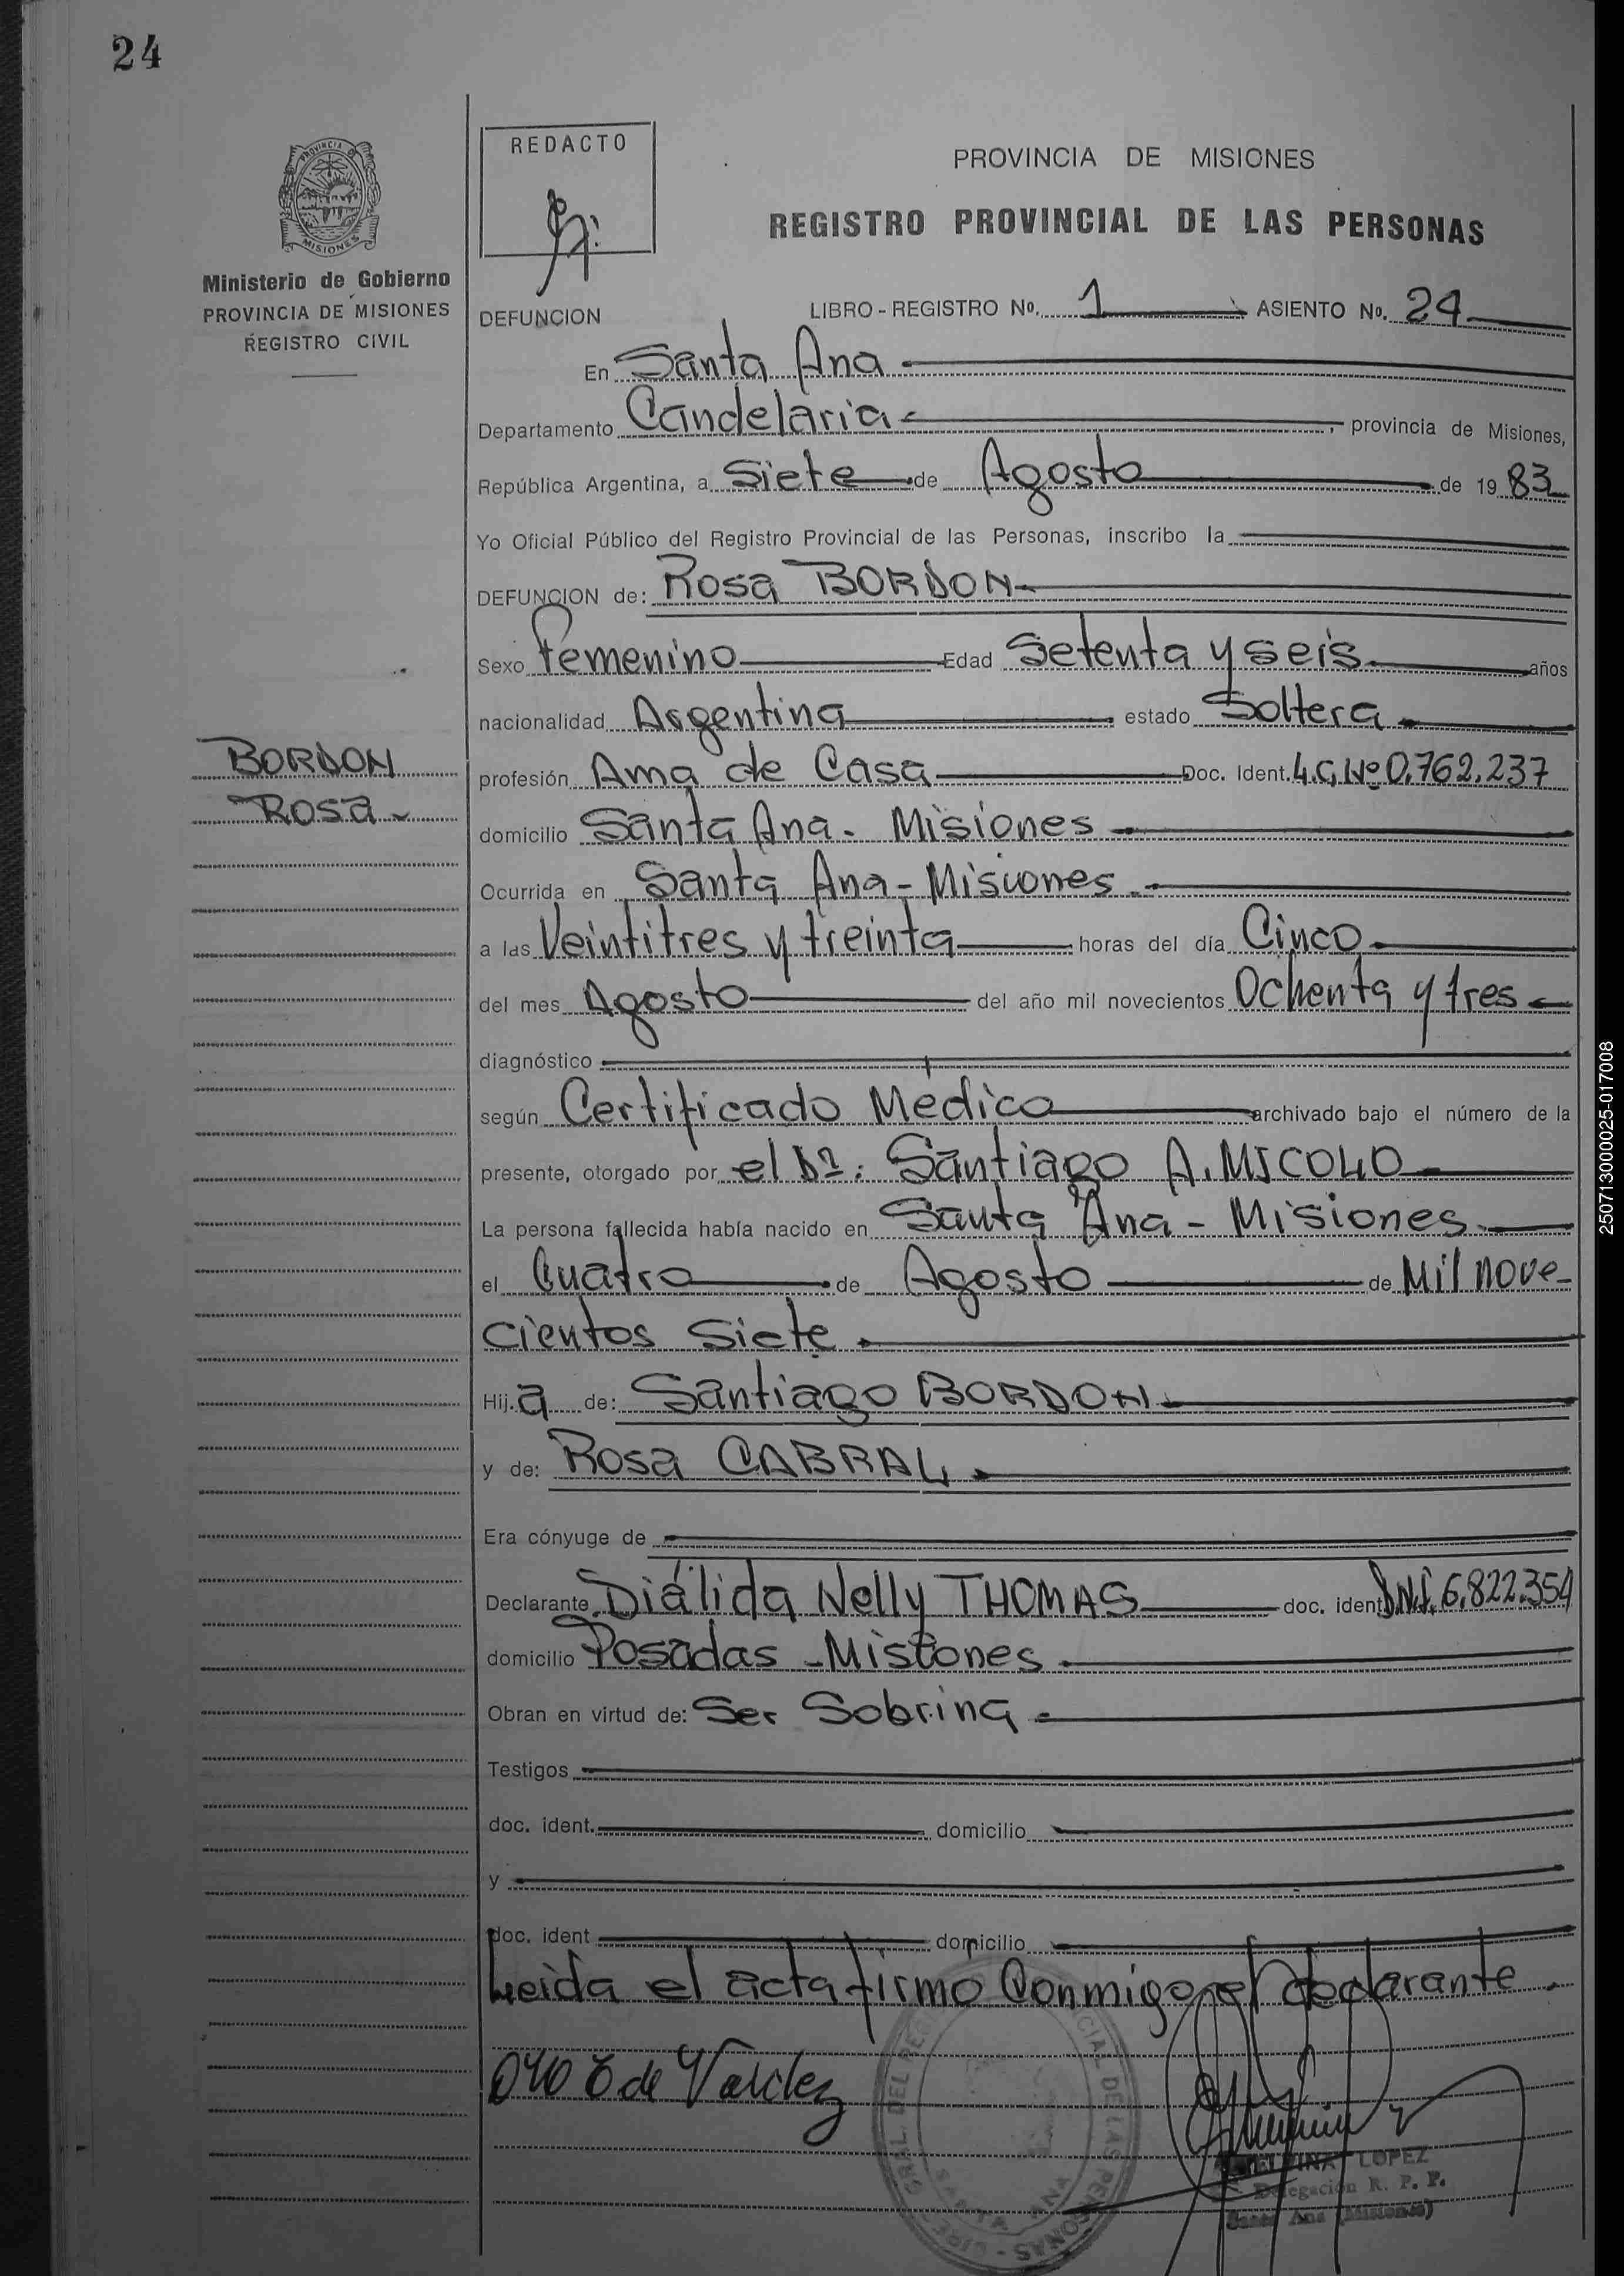 24
PROVINCIA DE
MISIONES
Ministerio de Gobierno
PROVINCIA DE MISIONES
REGISTRO CIVIL
REDACTO
PROVINCIA DE MISIONES
REGISTRO PROVINCIAL DE LAS PERSONAS
DEFUNCION LIBRO - REGISTRO Nº. 1 ASIENTO Nº. 24
En Santa Ana
Departamento Candelaria , provincia de Misiones,
República Argentina, a Siete de Agosto de 1983
Yo Oficial Público del Registro Provincial de las Personas, inscribo la
DEFUNCION de: Rosa BORDON
Sexo femenino Edad Setenta y seis años
nacionalidad Argentina estado Soltera
BORDON
Rosa
profesión Ama de Casa Doc. Ident. L.C. Nº 0.762.237
domicilio Santa Ana - Misiones
Ocurrida en Santa Ana - Misiones
a las Veintitres y treinta horas del día Cinco
del mes Agosto del año mil novecientos Ochenta y tres
diagnóstico
según Certificado Medico archivado bajo el número de la
presente, otorgado por el Dr. Santiago A. MICOLIO
La persona fallecida había nacido en Santa Ana - Misiones
el Cuatro de Agosto de Mil nove-
cientos Siete
Hija de: Santiago BORDON
y de: Rosa CABRAL
Era cónyuge de
Declarante Diálida Nelly THOMAS doc. ident D.N.I. 6.822.354
domicilio Posadas - Misiones
Obran en virtud de: Ser Sobrina
Testigos
doc. ident. domicilio
y
doc. ident domicilio
Leida el acta firmo Conmigo el declarante.
de Valdez
LOPEZ
Delegación R. P. P.
Santa Ana (Misiones)
250713000025-017008